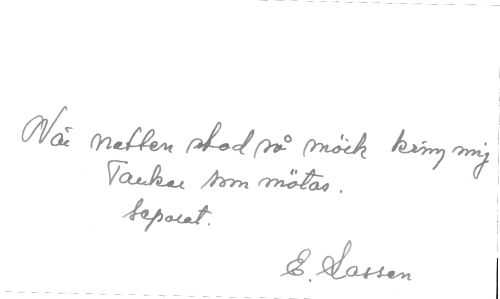 När natten stod så mörk kring mig
Tankar som mötas.
Separat.
E. Sassen